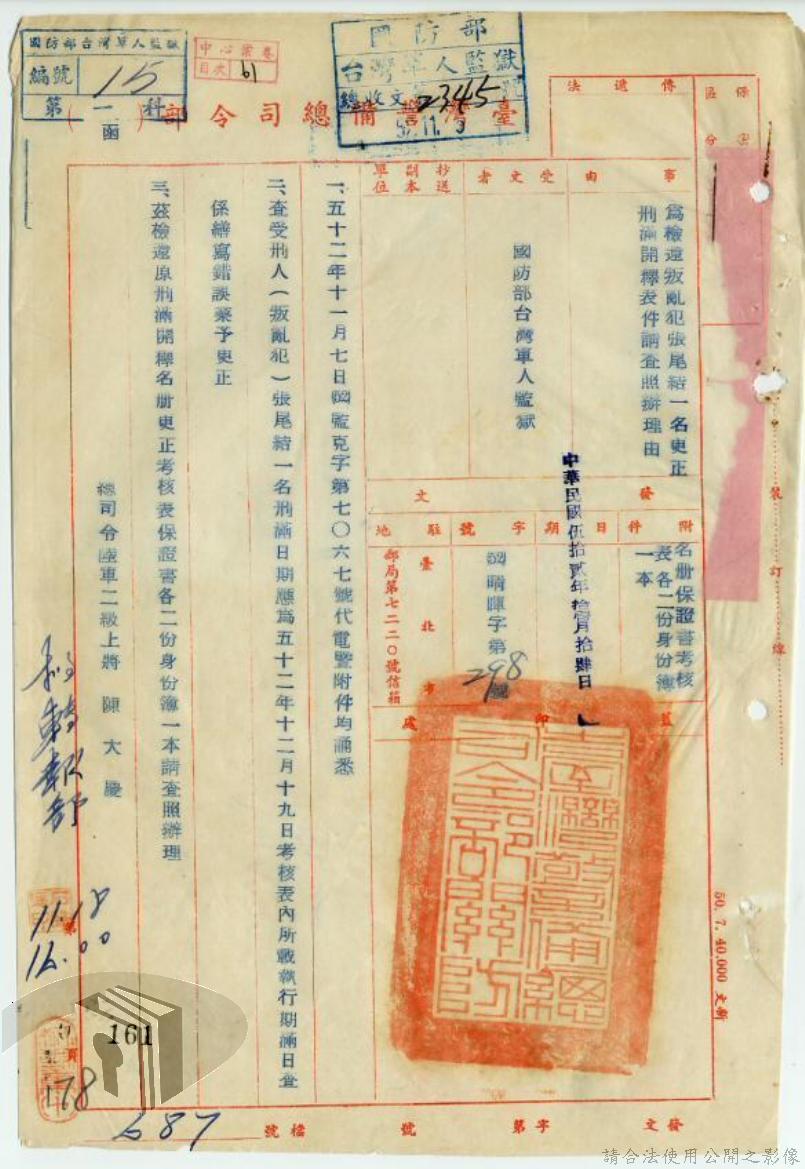 國防部台灣軍人監獄
編號 15
第一科
中心案卷
目次 61
國防部
台灣軍人監獄
總收文 2345號
52.11.
臺灣警備總司令部（函）
傳遞法
保密區分
受文者
國防部台灣軍人監獄
抄送副本單位
事由
為檢還叛亂犯張尾結一名更正
刑滿開釋表件請查照辦理由
發文
附件
名册保證書考核
表各二份身份簿
一本
日期
中華民國伍拾貳年拾壹月拾肆日
字號
晴暉字第298號
駐地
臺北市
郵局第七二二〇號信箱
蓋印處
臺灣警備總司令部關防
一、五十二年十一月七日監克字第七〇六七號代電暨附件均誦悉
二、查受刑人（叛亂犯）張尾結一名刑滿日期應為五十二年十二月十九日考核表內所載執行期滿日查
係繕寫錯誤業予更正
三、茲檢還原刑滿開釋名册更正考核表保證書各二份身份簿一本請查照辦理
總司令陸軍二級上將 陳大慶
11.18
16.00
第
頁
161
178
裝訂線
50.7.40,000
發文 字第 號 檔號
687
請合法使用公開之影像